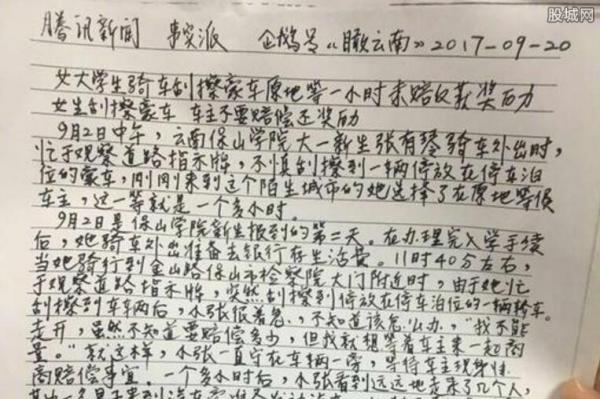 股城网
腾讯新闻 事实派 企鹅号《瞰云南》2017-09-20
女大学生骑车刮擦豪车原地等一小时求赔仅获奖励
女生刮擦豪车 车主不要赔偿还奖励
9月2日中午,云南保山学院大一新生张有琴骑车外出时,
忙于观察道路指示牌,不慎刮擦到一辆停放在停车泊
位的豪车,刚刚来到这个陌生城市的她选择了在原地等候
车主,这一等就是一个多小时。
9月2日是保山学院新生报到的第二天。在办理完入学手续
后,她骑车外出准备去银行存生活费。11时40分左右,
当她骑行到金山路保山市检察院大门附近时,由于她忙
于观察道路指示牌,突然刮擦到停放在停车泊位的一辆轿车。
刮擦到车车辆后,小张很着急,不知道该怎么办,“我不能
走开,虽然不知道要赔偿多少,但我就想等着车主来一起商
量。”就这样,小张一直守在车辆一旁,等待车主现身
商赔偿事宜。一个多小时后,小张看到远远地走来了几个人,